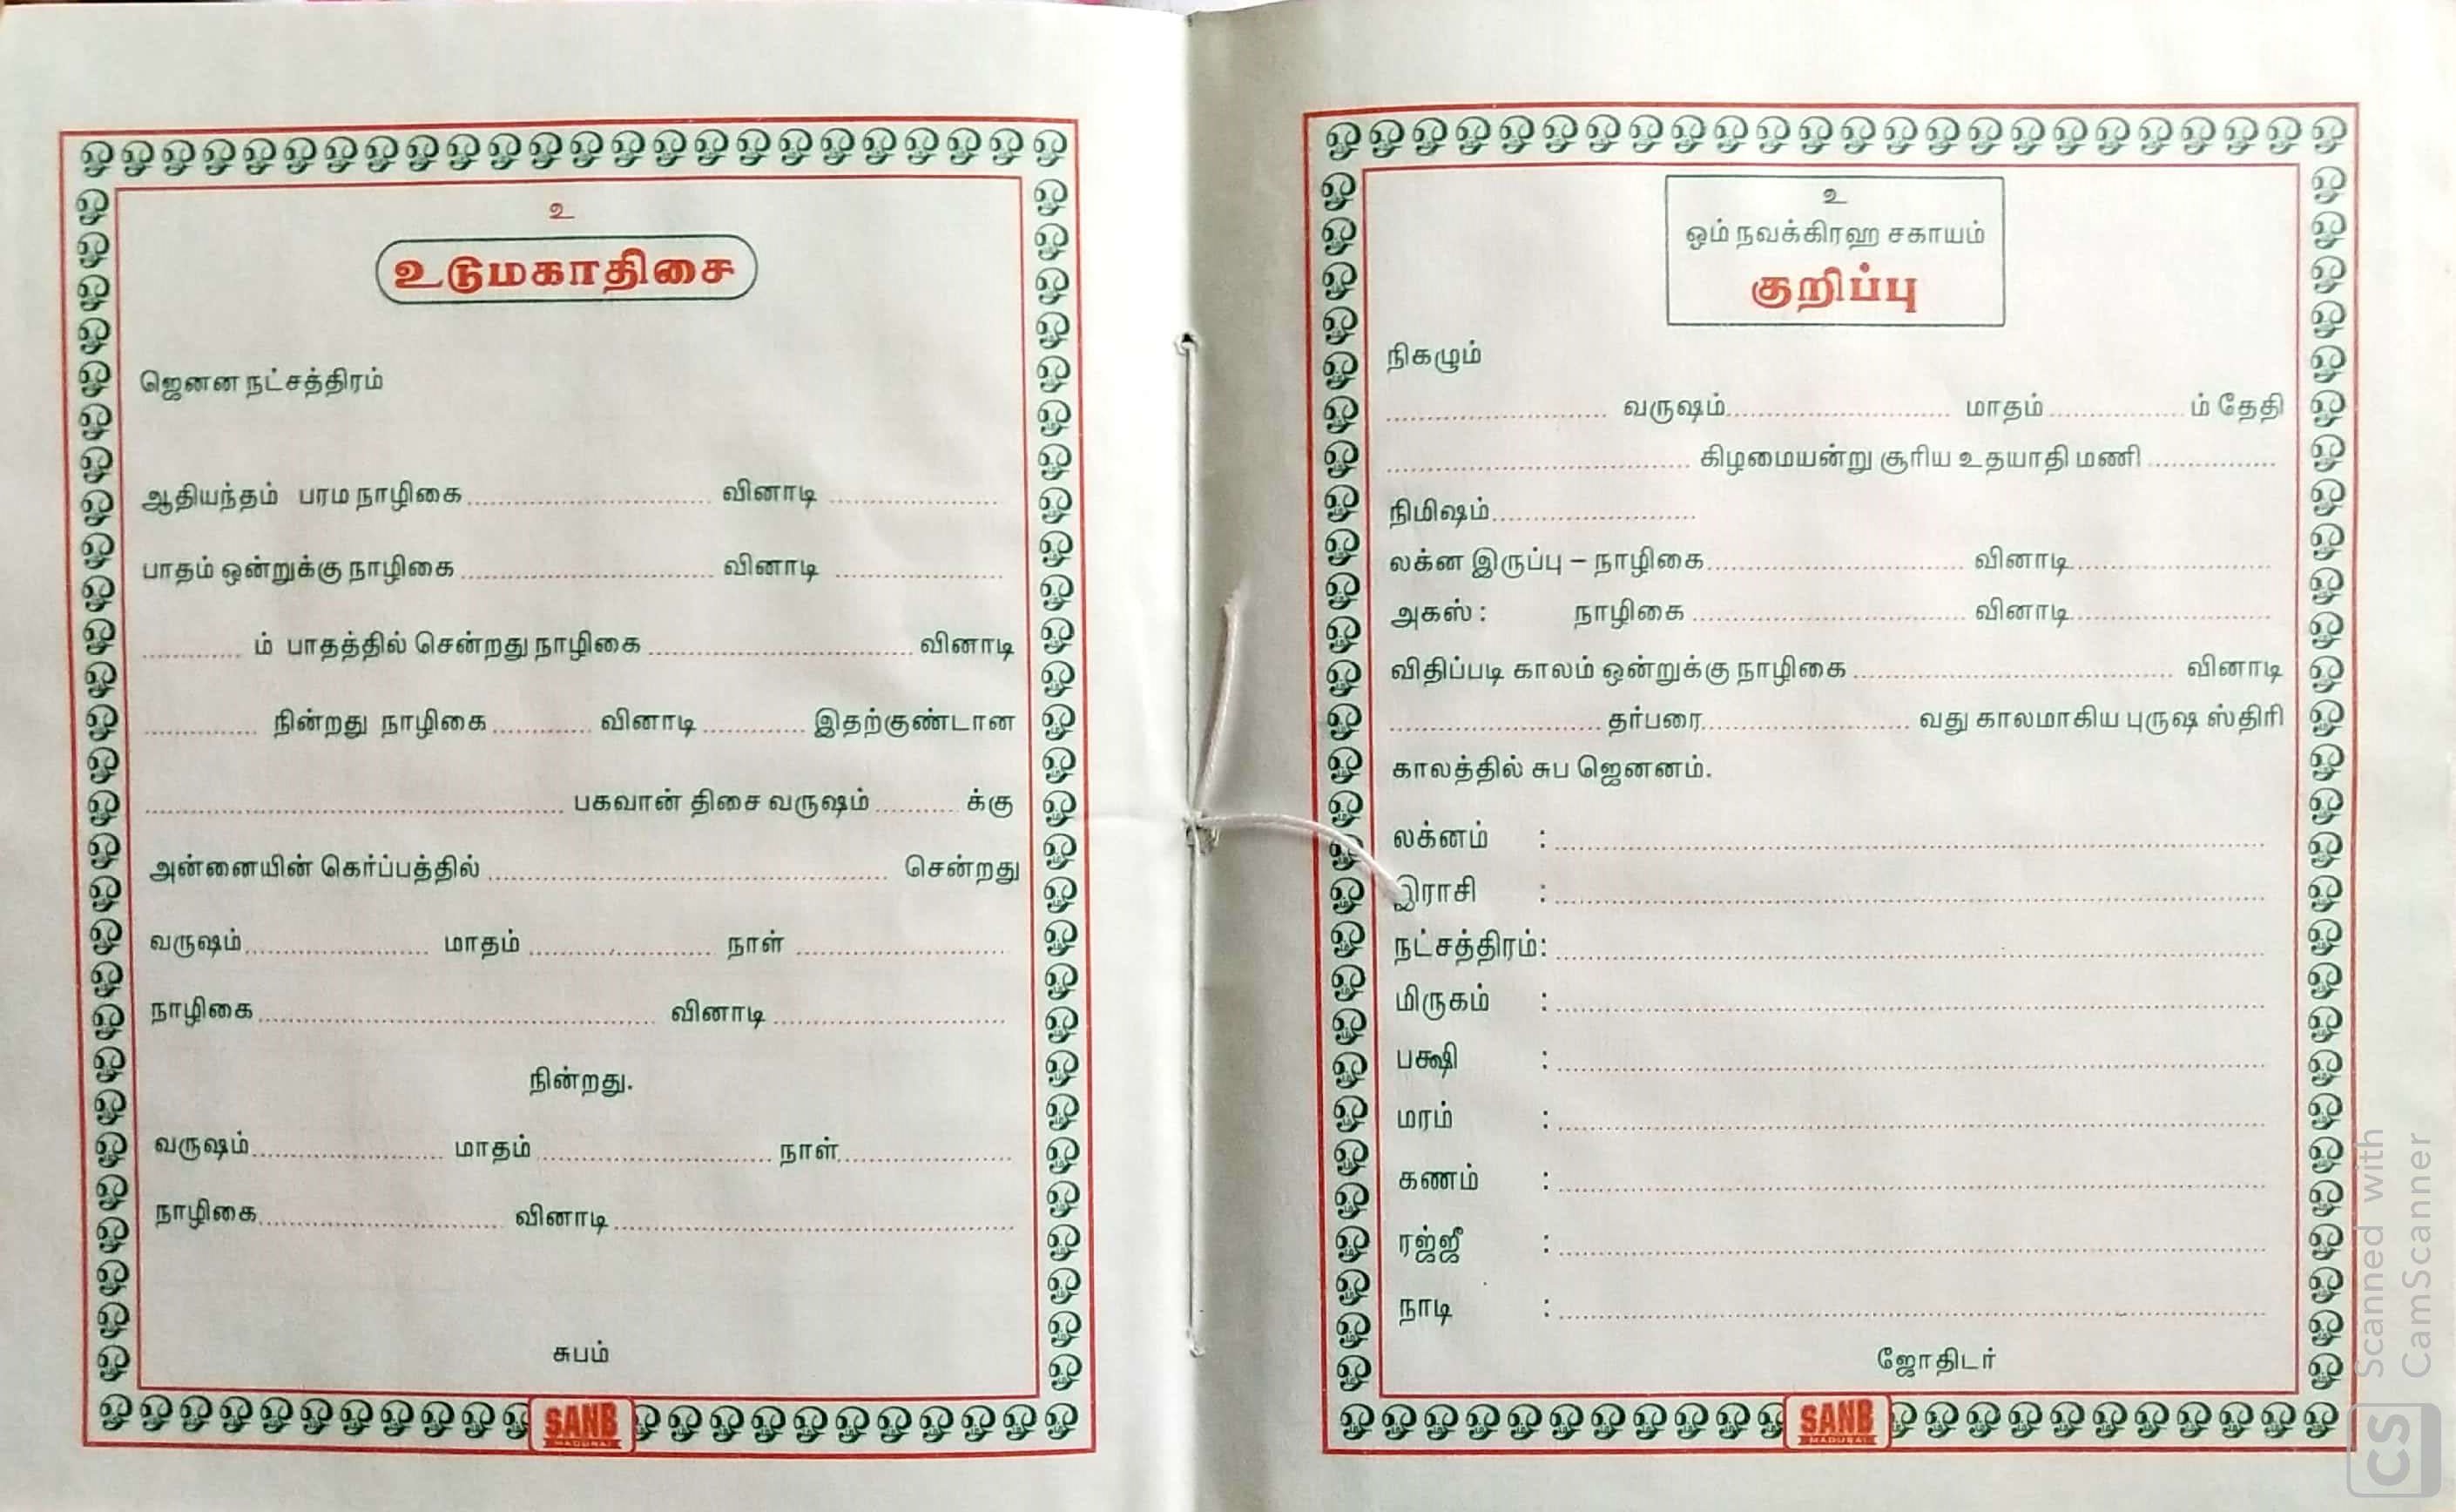 உ
உடுமகாதிசை
ஜெனன நட்சத்திரம்
ஆதியந்தம் பரம நாழிகை.................... வினாடி ....................
பாதம் ஒன்றுக்கு நாழிகை.................... வினாடி ....................
............ ம் பாதத்தில் சென்றது நாழிகை.................... வினாடி
............ நின்றது நாழிகை............ வினாடி............ இதற்குண்டான
.................... பகவான் திசை வருஷம்.......... க்கு
அன்னையின் கெர்ப்பத்தில்.................... சென்றது
வருஷம்.................... மாதம் .................... நாள் ....................
நாழிகை.................... வினாடி....................
நின்றது.
வருஷம்.................... மாதம்.................... நாள்....................
நாழிகை.................... வினாடி....................
சுபம்
SANB
MADURAI
உ
ஓம் நவக்கிரஹ சகாயம்
குறிப்பு
நிகழும்
.................... வருஷம்.................... மாதம்............... ம் தேதி
.................... கிழமையன்று சூரிய உதயாதி மணி...............
நிமிஷம்....................
லக்ன இருப்பு – நாழிகை.................... வினாடி....................
அகஸ் : நாழிகை.................... வினாடி....................
விதிப்படி காலம் ஒன்றுக்கு நாழிகை.................... வினாடி
.................... தர்பரை.................... வது காலமாகிய புருஷ ஸ்திரி
காலத்தில் சுப ஜெனனம்.
லக்னம் : ....................
இராசி : ....................
நட்சத்திரம்: ....................
மிருகம் : ....................
பக்ஷி : ....................
மரம் : ....................
கணம் : ....................
ரஜ்ஜீ : ....................
நாடி : ....................
ஜோதிடர்
SANB
MADURAI
CS Scanned with
CamScanner